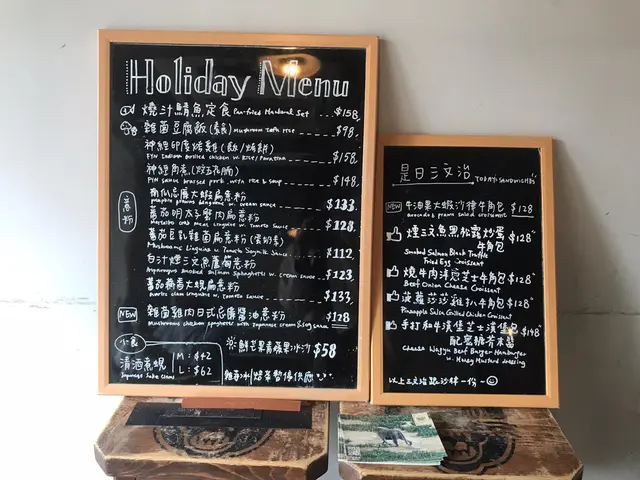 Holiday Menu
燒汁鯖魚定食 Pan-fried Mackerel Set $158
雜菌豆腐飯 (素食) Mushroom Tofu Rice $98
神經印度烤雞 (飯/烤餅)
FYN Indiana Broiled chicken w. Rice / Paratina $158
神經角煮 (炆五花腩)
FYN sauce braised pork with rice & soup $148
意粉
南瓜忌廉大蝦扁意粉
pumpkin prawns linguine w. cream sauce $133
蕃茄明太子蟹肉扁意粉
Mentaiko crab meat linguine w. Tomato Sauce $128
蕃茄豆乳雜菌扁意粉
Mushrooms Linguine w. Tomato Soymilk Sauce $112
白汁煙三文魚蘆筍意粉
Asparagus Smoked Salmon Spaghetti w. cream sauce $123
蕃茄蒜香大蜆扁意粉
Garlic clam linguine w. Tomato sauce $133
NEW
雜菌雞肉日式忌廉醬油意粉
Mushrooms chicken spaghetti with Japanese cream & soy sauce $128
小食
清酒煮蜆
Japanese Sake Clams
M: $42
L: $62
鮮芒果青蘋果冰沙 $58
是日三文治 TODAY SANDWICHES
NEW 牛油果大蝦沙律牛角包 $128
avocado & prawn salad croissant
煙三文魚黑松露炒蛋牛角包 $128
Smoked Salmon Black Truffle
Fried Egg Croissant
燒牛肉洋蔥芝士牛角包 $128
Beef Onion Cheese Croissant
菠蘿莎莎雞扒牛角包 $128
Pineapple Salsa Grilled Chicken Croissant
手打和牛漢堡芝士漢堡包 $148
配蜜糖芥末醬
Cheese Wagyu Beef Burger Hamburger
w. Honey Mustard dressing
以上三文治跟沙律一份~